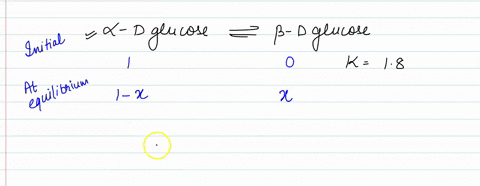 Initial = α-D glucose ⇌ β-D glucose
1 0 K = 1.8
At equilitrium 1-x x